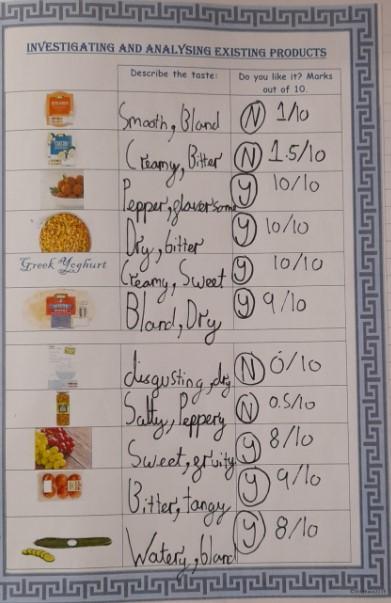 INVESTIGATING AND ANALYSING EXISTING PRODUCTS
Describe the taste: Do you like it? Marks
out of 10.
Smooth, Bland N 1/10
Creamy, Bitter N 1.5/10
Pepper, glaversome Y 10/10
Dry, bitter Y 10/10
Greek Yoghurt Creamy, Sweet Y 10/10
Bland, Dry Y 9/10
disgusting, dry N 0/10
Salty, Peppery N 0.5/10
Sweet, gruity Y 8/10
Bitter, tangy Y 9/10
Watery, bland Y 8/10